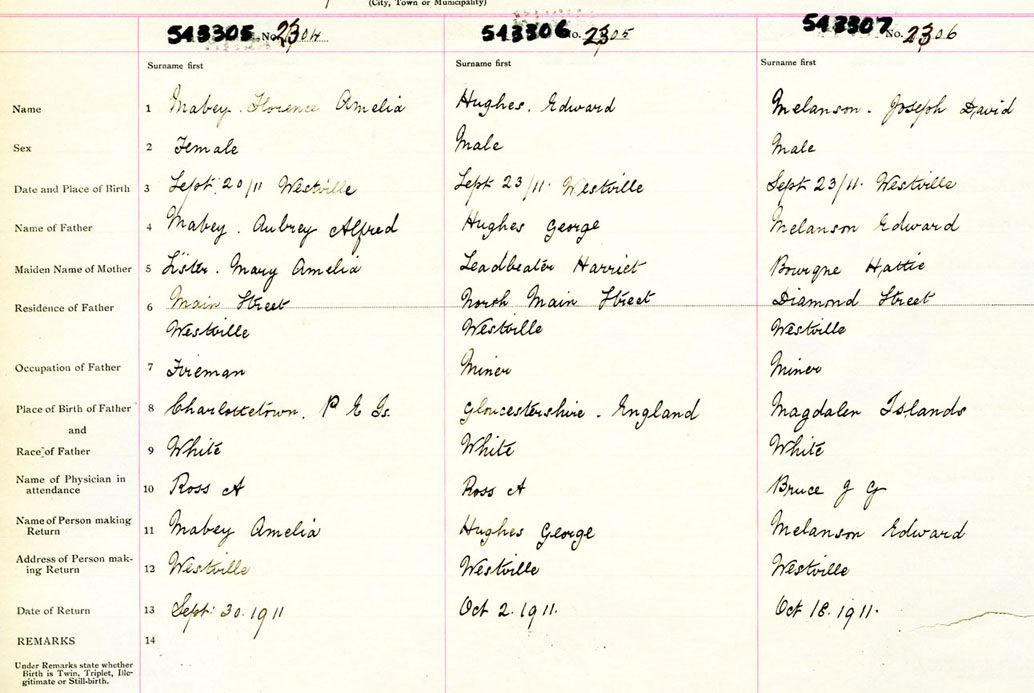 (City, Town or Municipality)
543305 No. 2304 543306 No. 2305 543307 No. 2306
Surname first Surname first Surname first
Name 1 Mabey. Florence Amelia Hughes. Edward Melanson. Joseph David
Sex 2 Female Male Male
Date and Place of Birth 3 Sept. 20/11 Westville Sept 23/11. Westville Sept 23/11. Westville
Name of Father 4 Mabey. Aubrey Alfred Hughes George Melanson Edward
Maiden Name of Mother 5 Lister. Mary Amelia Leadbeater Harriet Bourque Hattie
Residence of Father 6 Main Street North Main Street Diamond Street
Westville Westville Westville
Occupation of Father 7 Fireman Miner Miner
Place of Birth of Father 8 Charlottetown. P E Is. Gloucestershire. England Magdalen Islands
and
Race of Father 9 White White White
Name of Physician in
attendance 10 Ross A Ross A Bruce J G
Name of Person making
Return 11 Mabey Amelia Hughes George Melanson Edward
Address of Person mak-
ing Return 12 Westville Westville Westville
Date of Return 13 Sept: 30. 1911 Oct 2. 1911. Oct 18. 1911.
REMARKS 14
Under Remarks state whether
Birth is Twin, Triplet, Ille-
gitimate or Still-birth.